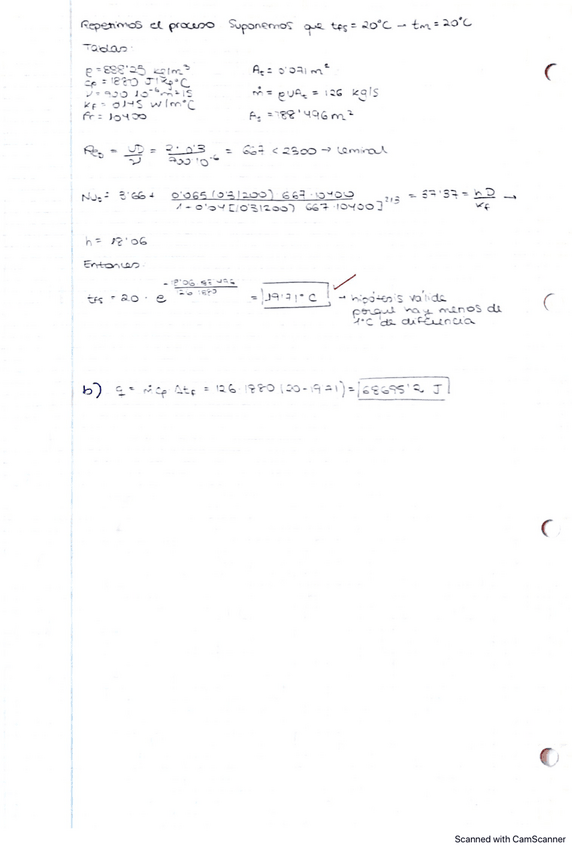 Repetimos el proceso Suponemos que tfs = 20°C → tm = 20°C
Tablas:
ρ = 888'25 kg/m³ At = 0'071 m²
cp = 1880 J/kg°C
ν = 900 10⁻⁶ m²/s ṁ = ρUAt = 126 kg/s
kf = 0'145 W/m°C
Pr = 10400 As = 188'496 m²
Re_D = UD/ν = 2·0'3/900·10⁻⁶ = 667 < 2300 → laminar
Nu = 3'66 + 0'065 (0'3/200) 667·10400 / 1 + 0'04 [(0'3/200) 667·10400]^2/3 = 37'37 = hD/kf →
h = 18'06
Entonces
tfs = 20 · e = 19'71°C → hipótesis válida
porque hay menos de
1°C de diferencia
b) q = ṁcp Δtf = 126·1880 (20-19'71) = 68695'2 J
Scanned with CamScanner